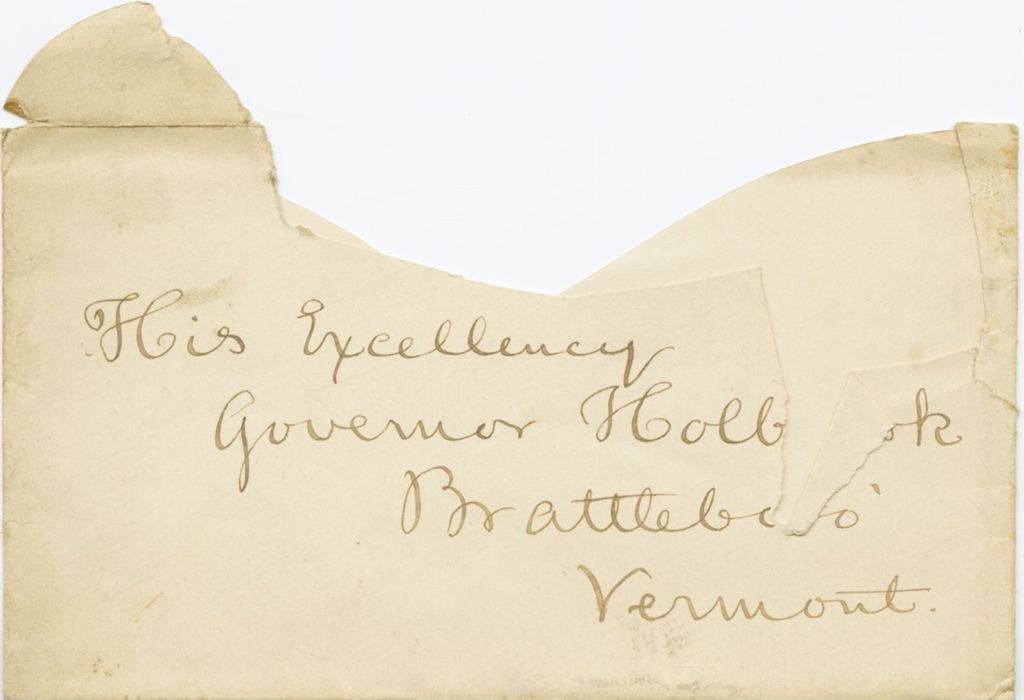 His Excellency
Governor Holb ok
Brattlebo o'
Vermont.